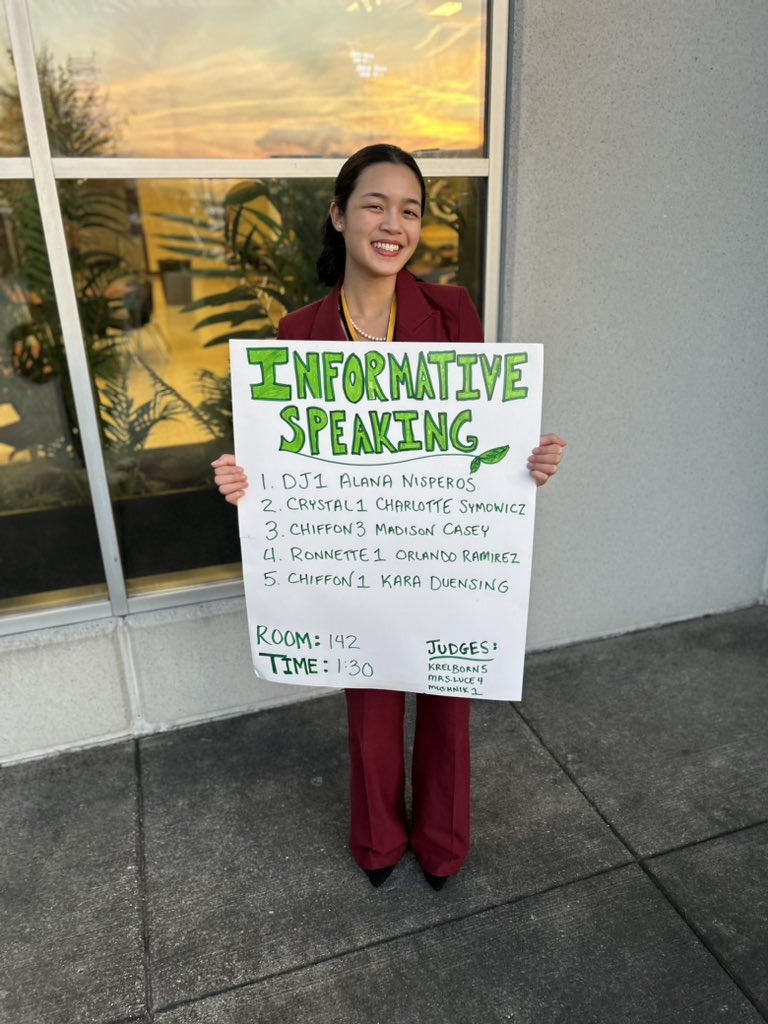 INFORMATIVE
SPEAKING
1. DJ1 ALANA NISPEROS
2. CRYSTAL1 CHARLOTTE SYMOWICZ
3. CHIFFON3 MADISON CASEY
4. RONNETTE1 ORLANDO RAMIREZ
5. CHIFFON1 KARA DUENSING
ROOM: 142
TIME: 1:30
JUDGES:
KRELBORN5
MRS.LUCE4
MUSHNIK1